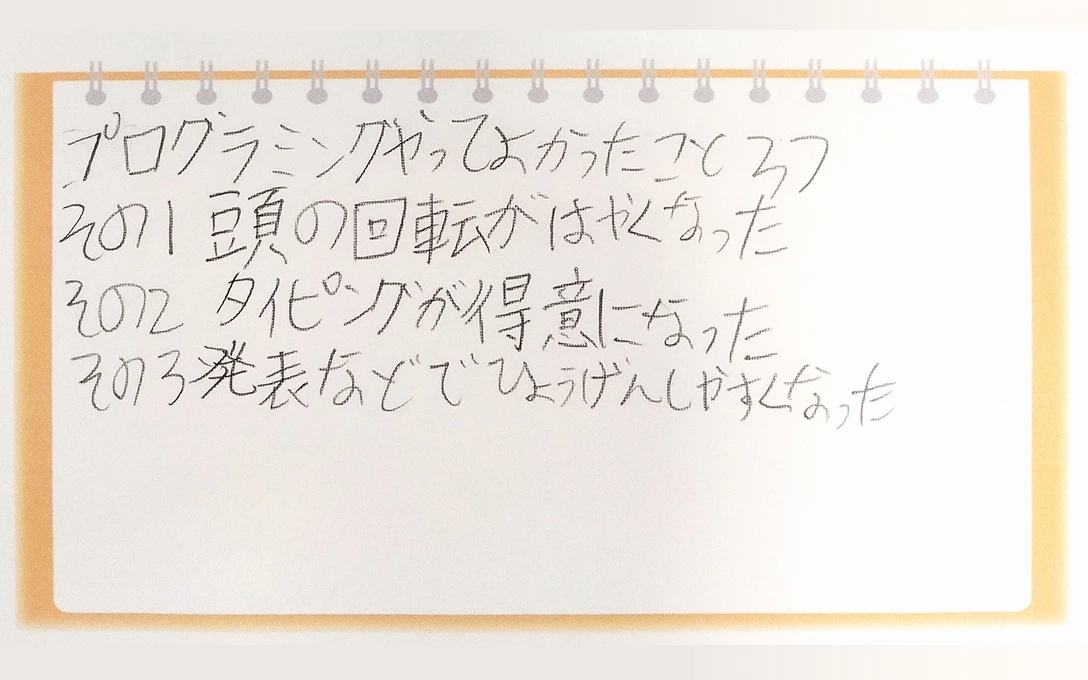 プログラミングやってよかったこと3つ
その1 頭の回転がはやくなった
その2 タイピングが得意になった
その3 発表などでひょうげんしやすくなった